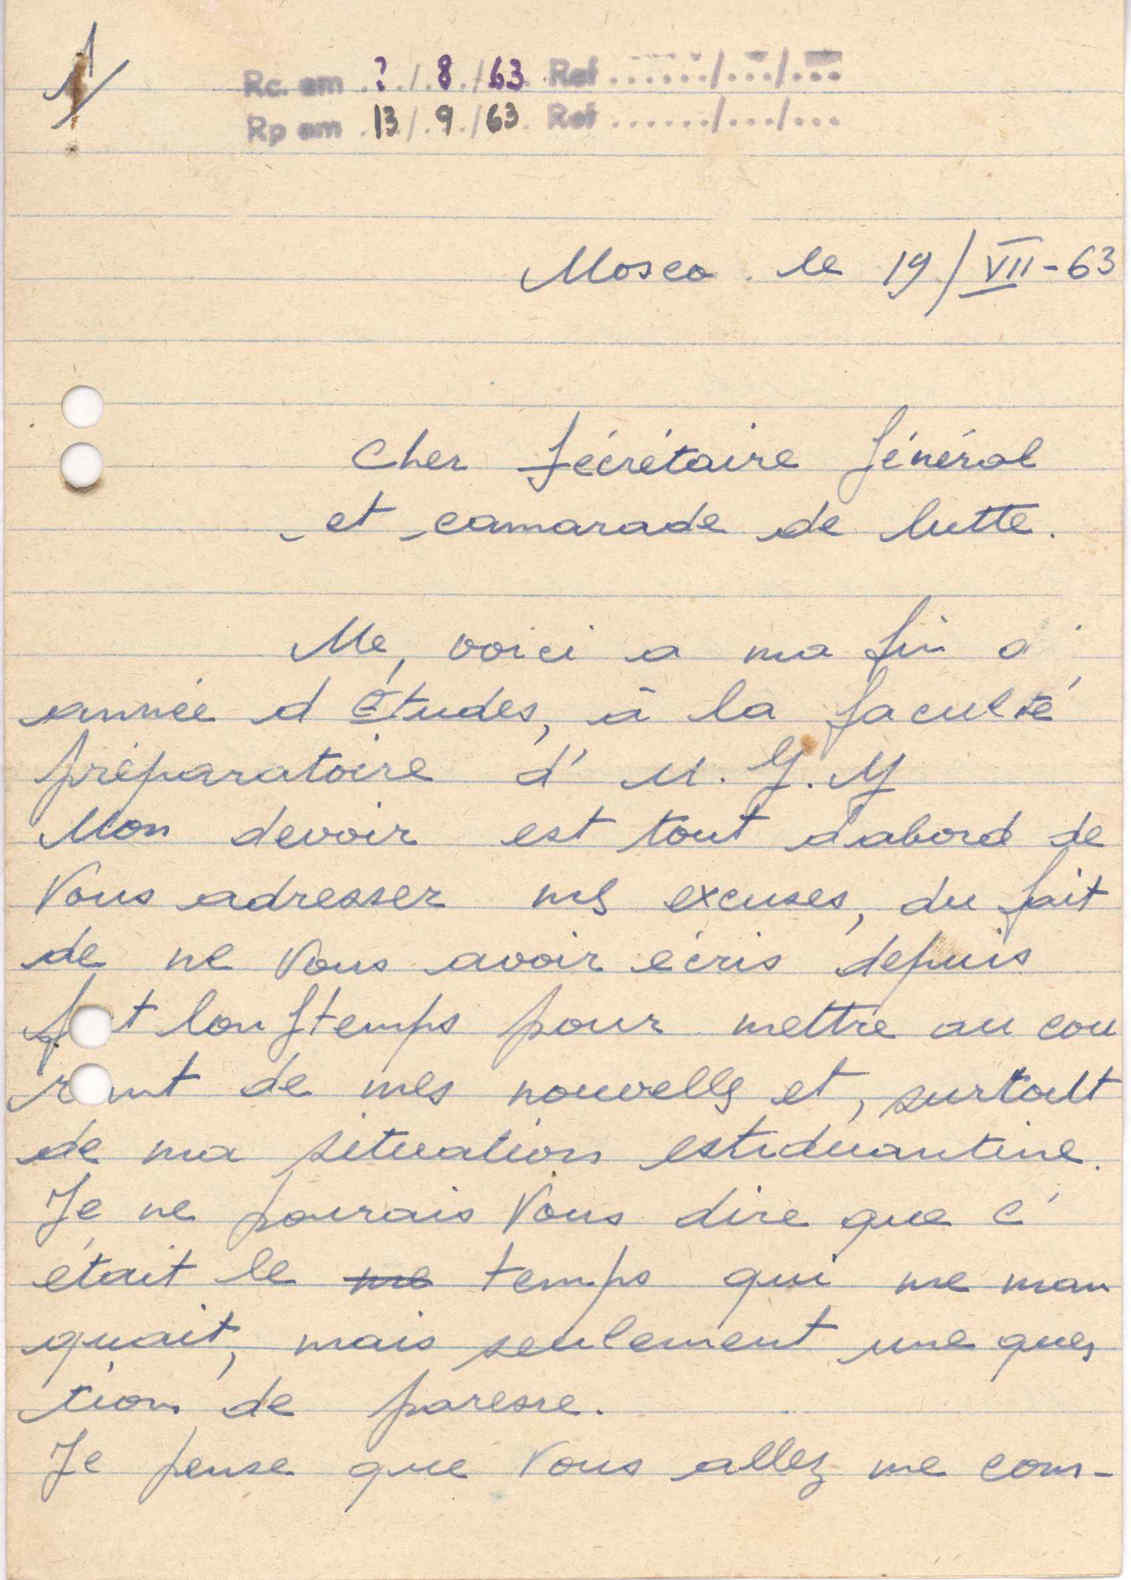 1/
Rc. em ?/8/63 Ref ....../.../...
Rp em 13/9/63 Ref ....../.../...
Mosco le 19/VII-63
Cher Sécrétaire Général
et camarade de lutte.
Me, voici a ma fin d'
année d Études, à la faculté
préparatoire d' U.G.M
Mon devoir est tout d'abord de
Vous adresser mes excuses, du fait
de ne Vous avoir écris depuis
f t longtemps pour mettre au cou
r nt de mes nouvelles et, surtout
de ma situation estiduantine.
Je ne pourais Vous dire que c'
était le me temps qui me man
quait, mais seulement une ques
tion de paresse.
Je pense que Vous allez me com-